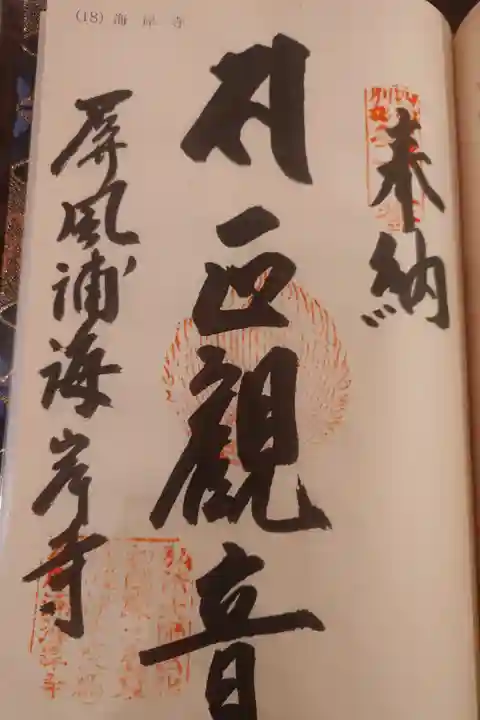 (18) 海岸寺
奉納
正観音
屏風浦海岸寺